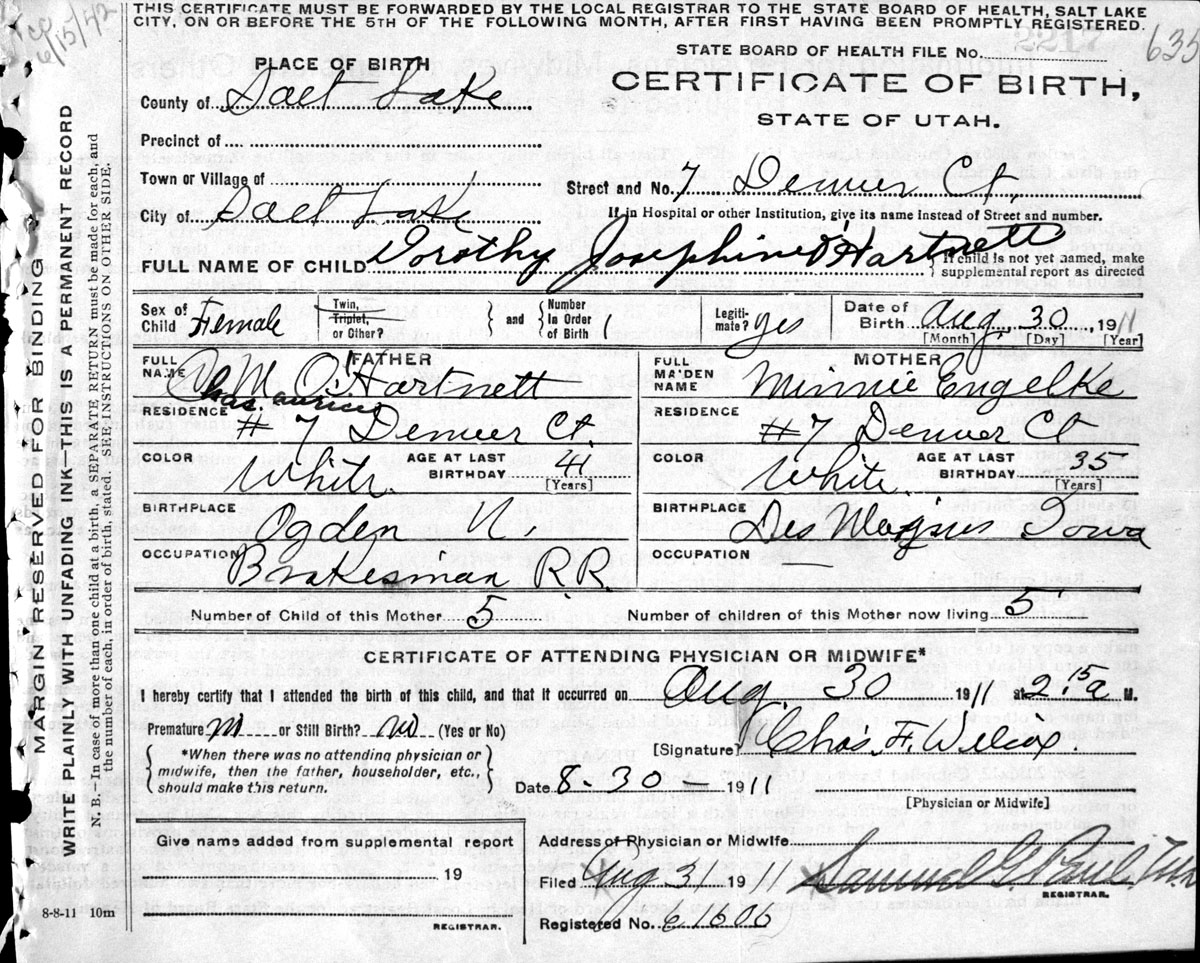 THIS CERTIFICATE MUST BE FORWARDED BY THE LOCAL REGISTRAR TO THE STATE BOARD OF HEALTH, SALT LAKE
CITY, ON OR BEFORE THE 5TH OF THE FOLLOWING MONTH, AFTER FIRST HAVING BEEN PROMPTLY REGISTERED.
6/15/42
635
STATE BOARD OF HEALTH FILE No. 2217
PLACE OF BIRTH
CERTIFICATE OF BIRTH,
STATE OF UTAH.
County of Salt Lake
Precinct of
Town or Village of
Street and No. 7 Denver Ct.
City of Salt Lake
If in Hospital or other Institution, give its name instead of Street and number.
FULL NAME OF CHILD Dorothy Josephine O'Hartnett
If child is not yet named, make
supplemental report as directed
Sex of Child Female
Twin, Triplet, or Other?
and
Number In Order of Birth
Legiti-mate? yes
Date of Birth Aug, 30, 1911
[Month] [Day] [Year]
FATHER
FULL NAME M. O'Hartnett
Chas. aurice
MOTHER
FULL MAIDEN NAME Minnie Engelke
RESIDENCE # 7 Denver Ct.
RESIDENCE #7 Denver Ct
COLOR White. AGE AT LAST BIRTHDAY 41 [Years]
COLOR White. AGE AT LAST BIRTHDAY 35 [Years]
BIRTHPLACE Ogden U.
BIRTHPLACE Des Moines Iowa
OCCUPATION Brakesman R.R.
OCCUPATION —
Number of Child of this Mother 5
Number of children of this Mother now living 5
CERTIFICATE OF ATTENDING PHYSICIAN OR MIDWIFE*
I hereby certify that I attended the birth of this child, and that it occurred on Aug. 30 1911 at 2.15 a M.
Premature? no or Still Birth? no (Yes or No)
[Signature] Chas. F. Wilcox.
*When there was no attending physician or
midwife, then the father, householder, etc.,
should make this return.
Date 8-30- 1911
[Physician or Midwife]
Give name added from supplemental report
19
REGISTRAR.
Address of Physician or Midwife
Filed Aug 31 1911 Samuel G. Paul
REGISTRAR.
Registered No. 61606
8-8-11 10m
MARGIN RESERVED FOR BINDING
WRITE PLAINLY WITH UNFADING INK—THIS IS A PERMANENT RECORD
N. B.—In case of more than one child at a birth, a SEPARATE RETURN must be made for each, and
the number of each, in order of birth, stated. SEE INSTRUCTIONS ON OTHER SIDE.